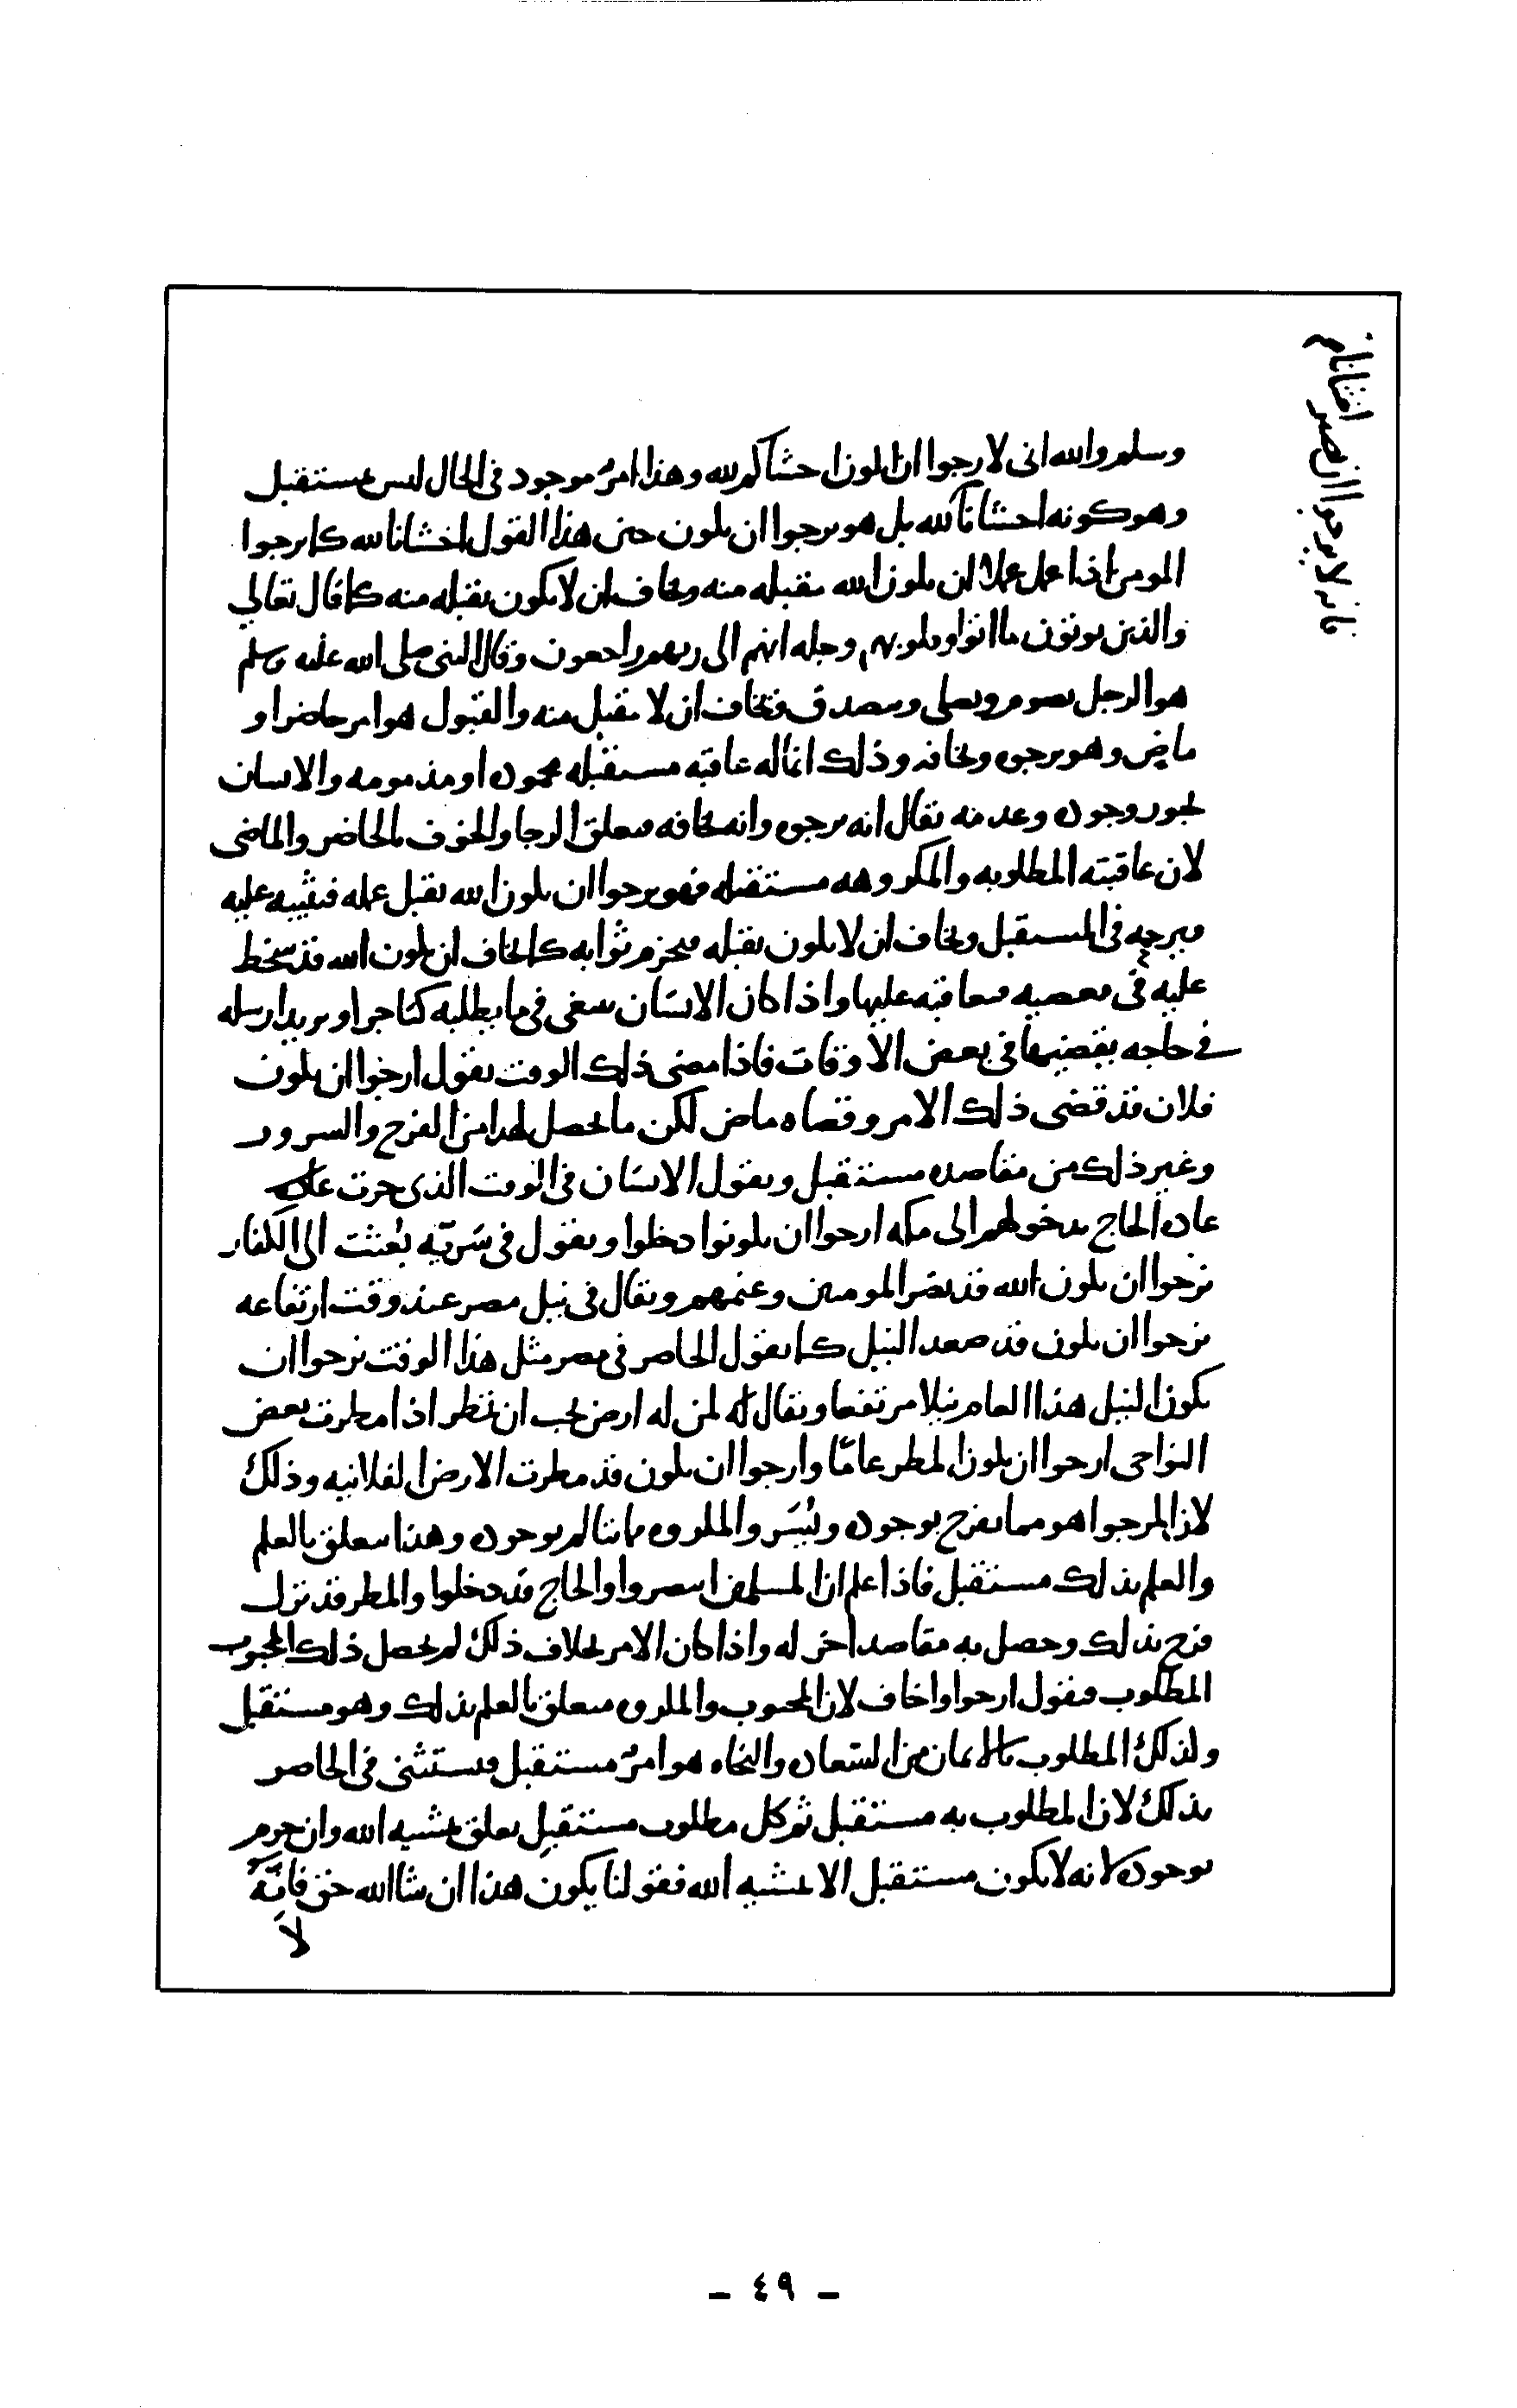 وسلم والله اني لارجوا ان اكون اخشاكم لله وهذا امرٌ موجود في الحال ليس بمستقبل
وهو كونه اخشانا لله بل هو يرجوا ان يكون حين هذا القول اخشانا لله كما يرجوا
المومن اذا عمل عملا ان يكون الله تقبله منه ويخاف ان لا يكون تقبله منه كما قال تعالي
والذين يوتون ما اتوا وقلوبهم وجله انهم الى ربهم راجعون وقال النبي صلى الله عليه وسلم
هو الرجل يصوم ويصلى ويتصدق ويخاف ان لا يقبل منه والقبول هو امر حاضر او
ماضٍ وهو يرجوه ويخافه وذلك ان ماله عاقبه مستقبله محموده او مذمومه والانسان
يجوز وجوده وعدمه يقال انه يرجوه وانه يخافه فتعلق الرجا والخوف بالحاضر والماضى
لان عاقبته المطلوبه والمكروهه مستقبله فهو يرجوا ان يكون الله تقبل عمله فيثيبه عليه
فيرحمه في المستقبل ويخاف ان لا يكون تقبله فيحرم ثوابه كما يخاف ان يكون الله قد سخط
عليه في معصيه فيعاقبه عليها واذا كان الانسان يسعى في ما يطلبه كتاجر او بريد ارسله
في حاجه يقضيها في بعض الاوقات فاذا مضى ذلك الوقت يقول ارجوا ان يكون
فلان قد قضى ذلك الامر وقضاه ماضٍ لكن ما يحصل لهذا من الفرح والسرور
وغير ذلك من مقاصده مستقبل ويقول الانسان في الوقت الذى جرت
عادة الحاج بدخولهم الى مكه ارجوا ان يكونوا دخلوا ويقول في سَريّه بُعثت الى الكفار
نرجوا ان يكون الله قد نصر المومنين وغنمهم ويقال في نيل مصر عند وقت ارتفاعه
نرجوا ان يكون قد صعد النيل كما يقول الحاضر في مصر مثل هذا الوقت نرجوا ان
يكون النيل هذا العام نيلا مرتفعا ويقال لمن له ارض يحب ان تمطر اذا مطرت بعض
النواحى ارجوا ان يكون المطر عامًا وارجوا ان يكون قد مطرت الارض الفلانيه وذلك
لان المرجوا هو مما يفرح بوجوده ويُسَر والمكروه ما يتالم بوجوده وهذا يتعلق بالعلم
والعلم بذلك مستقبل فاذا علم ان المسلمين انتصروا والحاج قد دخلوا والمطر قد نزل
فرح بذلك وحصل به مقاصد اخر له واذا كان الامر بخلاف ذلك لم يحصل ذلك المحبوب
المطلوب فيقول ارجوا واخاف لان المحبوب والمكروه متعلق بالعلم بذلك وهو مستقبل
ولذلك المطلوب بالايمان من السعاده والنجاه هو امرٌ مستقبل فيستثنى في الحاضر
بذلك لان المطلوب به مستقبل ثم كل مطلوب مستقبل يعلق بمشيه الله وان جزم
بوجوده لانه لا يكون مستقبل الا بمشيه الله فقولنا يكون هذا ان شا الله حق فانّه
لا
فانه لا يرجوا ان نصير اتقانا
- ٤٩ -